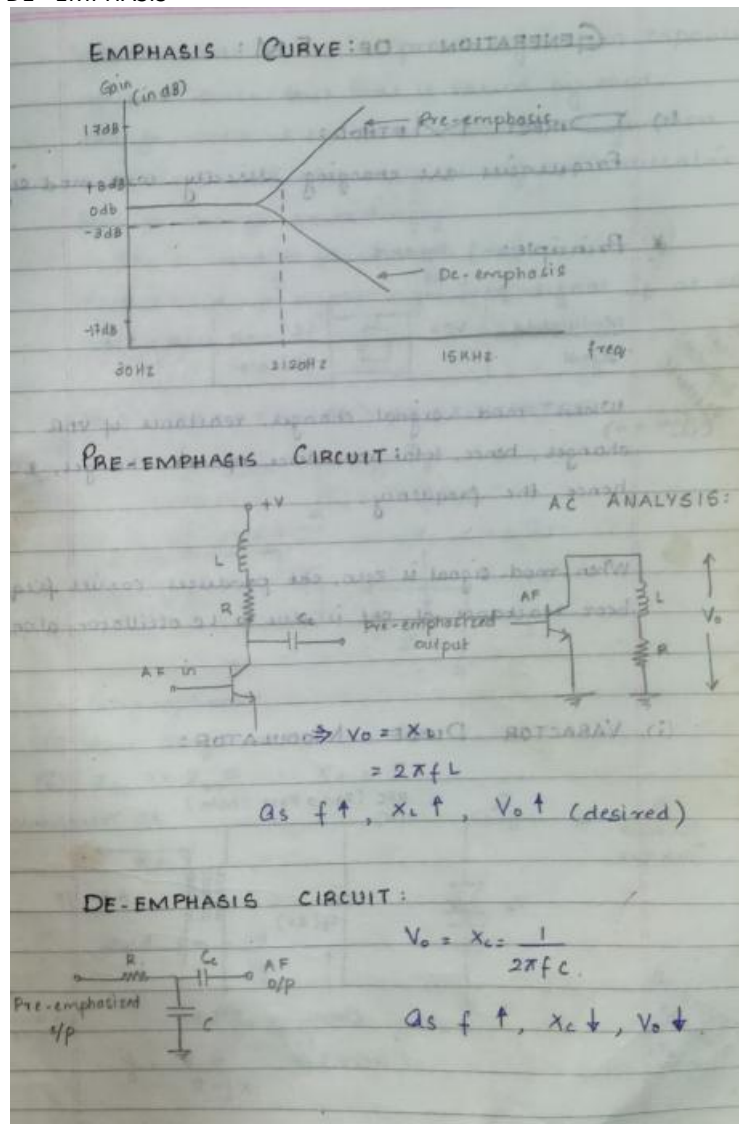 DE - EMPHASIS
EMPHASIS CURVE:
Gain (in dB)
17dB
+3dB
0db
-3dB
-17dB
Pre-emphasis
De-emphasis
30HZ
2120HZ
15KHZ
freq.
PRE-EMPHASIS CIRCUIT:
+V
L
R
Cc
Pre-emphasized
output
AF in
AC ANALYSIS:
AF
L
R
Vo
⇒ Vo = XL
= 2πfL
as f ↑, XL ↑, Vo ↑ (desired)
DE-EMPHASIS CIRCUIT:
R
Cc
AF
O/P
Pre-emphasized
i/p
C
Vo = Xc = 1/2πfC.
as f ↑, Xc ↓, Vo ↓.